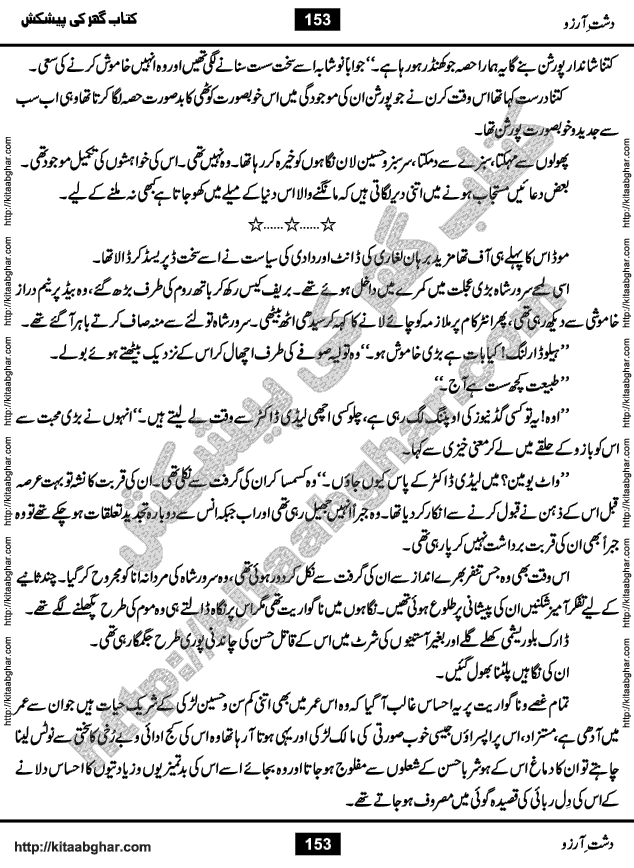 کتاب گھر کی پیشکش
153
دشتِ آرزو
کتنا شاندار پورشن بنے گا یہ ہمارا حصہ جو کھنڈر ہو رہا ہے۔‘‘ جواباً نوشابہ اسے سخت سست سنانے لگی تھیں اور وہ انہیں خاموش کرنے کی سعی۔
کتنا درست کہا تھا اس وقت کرن نے جو پورشن ان کی موجودگی میں اس خوبصورت کوٹھی کا بدصورت حصہ لگا کرتا تھا وہی اب سب
سے جدید و خوبصورت پورشن تھا۔
پھولوں سے مہکتا، سبزے سے دمکتا، سرسبز و حسین لان نگاہوں کو خیرہ کر رہا تھا۔ وہ نہیں تھی۔ اس کی خواہشوں کی تکمیل موجود تھی۔
بعض دعائیں مستجاب ہونے میں اتنی دیر لگاتی ہیں کہ مانگنے والا اس دنیا کے میلے میں کھو جاتا ہے کبھی نہ ملنے کے لیے۔
☆......☆......☆
موڈ اس کا پہلے ہی آف تھا مزید برہان لغاری کی ڈانٹ اور دادی کی سیاست نے اسے سخت ڈپریسڈ کر ڈالا تھا۔
اسی لمحے سرور شاہ بڑی عجلت میں کمرے میں داخل ہوئے تھے۔ بریف کیس رکھ کر باتھ روم کی طرف بڑھ گئے، وہ بیڈ پر نیم دراز
خاموشی سے دیکھ رہی تھی، پھر انٹرکام پر ملازمہ کو چائے لانے کا کہہ کر سیدھی اٹھ بیٹھی۔ سرور شاہ تولئے سے منہ صاف کرتے باہر آ گئے تھے۔
’’ہیلو ڈارلنگ! کیا بات ہے بڑی خاموش ہو۔‘‘ وہ تولیہ صوفے کی طرف اچھال کر اس کے نزدیک بیٹھتے ہوئے بولے۔
’’طبیعت کچھ ست ہے آج۔‘‘
’’اوہ! یہ تو کسی گڈ نیوز کی اوپننگ لگ رہی ہے، چلو کسی اچھی لیڈی ڈاکٹر سے وقت لے لیتے ہیں۔‘‘ انہوں نے بڑی محبت سے
اس کو بازو کے حلقے میں لے کر معنی خیزی سے کہا۔
’’واٹ یو مین؟ میں لیڈی ڈاکٹر کے پاس کیوں جاؤں۔‘‘ وہ کسمسا کر ان کی گرفت سے نکلی تھی۔ ان کی قربت کا نشہ تو بہت عرصہ
قبل اس کے ذہن نے قبول کرنے سے انکار کر دیا تھا۔ وہ جبراً انہیں جھیل رہی تھی اور اب جبکہ انس سے دوبارہ تجدید تعلقات ہو چکے تھے تو وہ
جبراً بھی ان کی قربت برداشت نہیں کر پا رہی تھی۔
اس وقت بھی وہ جس تنفر بھرے انداز سے ان کی گرفت سے نکل کر دور ہوئی تھی، وہ سرور شاہ کی مردانہ انا کو مجروح کر گیا۔ چند ثانیے
کے لیے تفکر آمیز شکنیں ان کی پیشانی پر طلوع ہوئی تھیں۔ نگاہوں میں ناگواریت تھی مگر اس پر نگاہ ڈالتے ہی وہ موم کی طرح پگھلنے لگے تھے۔
ڈارک بلو ریشمی کھلے گلے اور بغیر آستینوں کی شرٹ میں اس کے قاتل حسن کی چاندنی پوری طرح جگمگا رہی تھی۔
ان کی نگاہیں پلٹنا بھول گئیں۔
تمام غصے و ناگواریت پر یہ احساس غالب آ گیا کہ وہ اس عمر میں بھی اتنی کم سن و حسین لڑکی کے شریک حیات ہیں جو ان سے عمر
میں آدھی ہے، مستزاد، اس پر اپسراؤں جیسی خوب صورتی کی مالک لڑکی اور یہی ہوتا آ رہا تھا وہ اس کی کج ادائی و بے رخی کا سختی سے نوٹس لینا
چاہتے تو ان کا دماغ اس کے ہوشربا حسن کے شعلوں سے مفلوج ہو جاتا اور وہ بجائے اسے اس کی بدتمیزیوں و زیادتیوں کا احساس دلانے
کے اس کی دل ربائی کی قصیدہ گوئی میں مصروف ہو جاتے تھے۔
http://kitaabghar.com
153
دشتِ آرزو